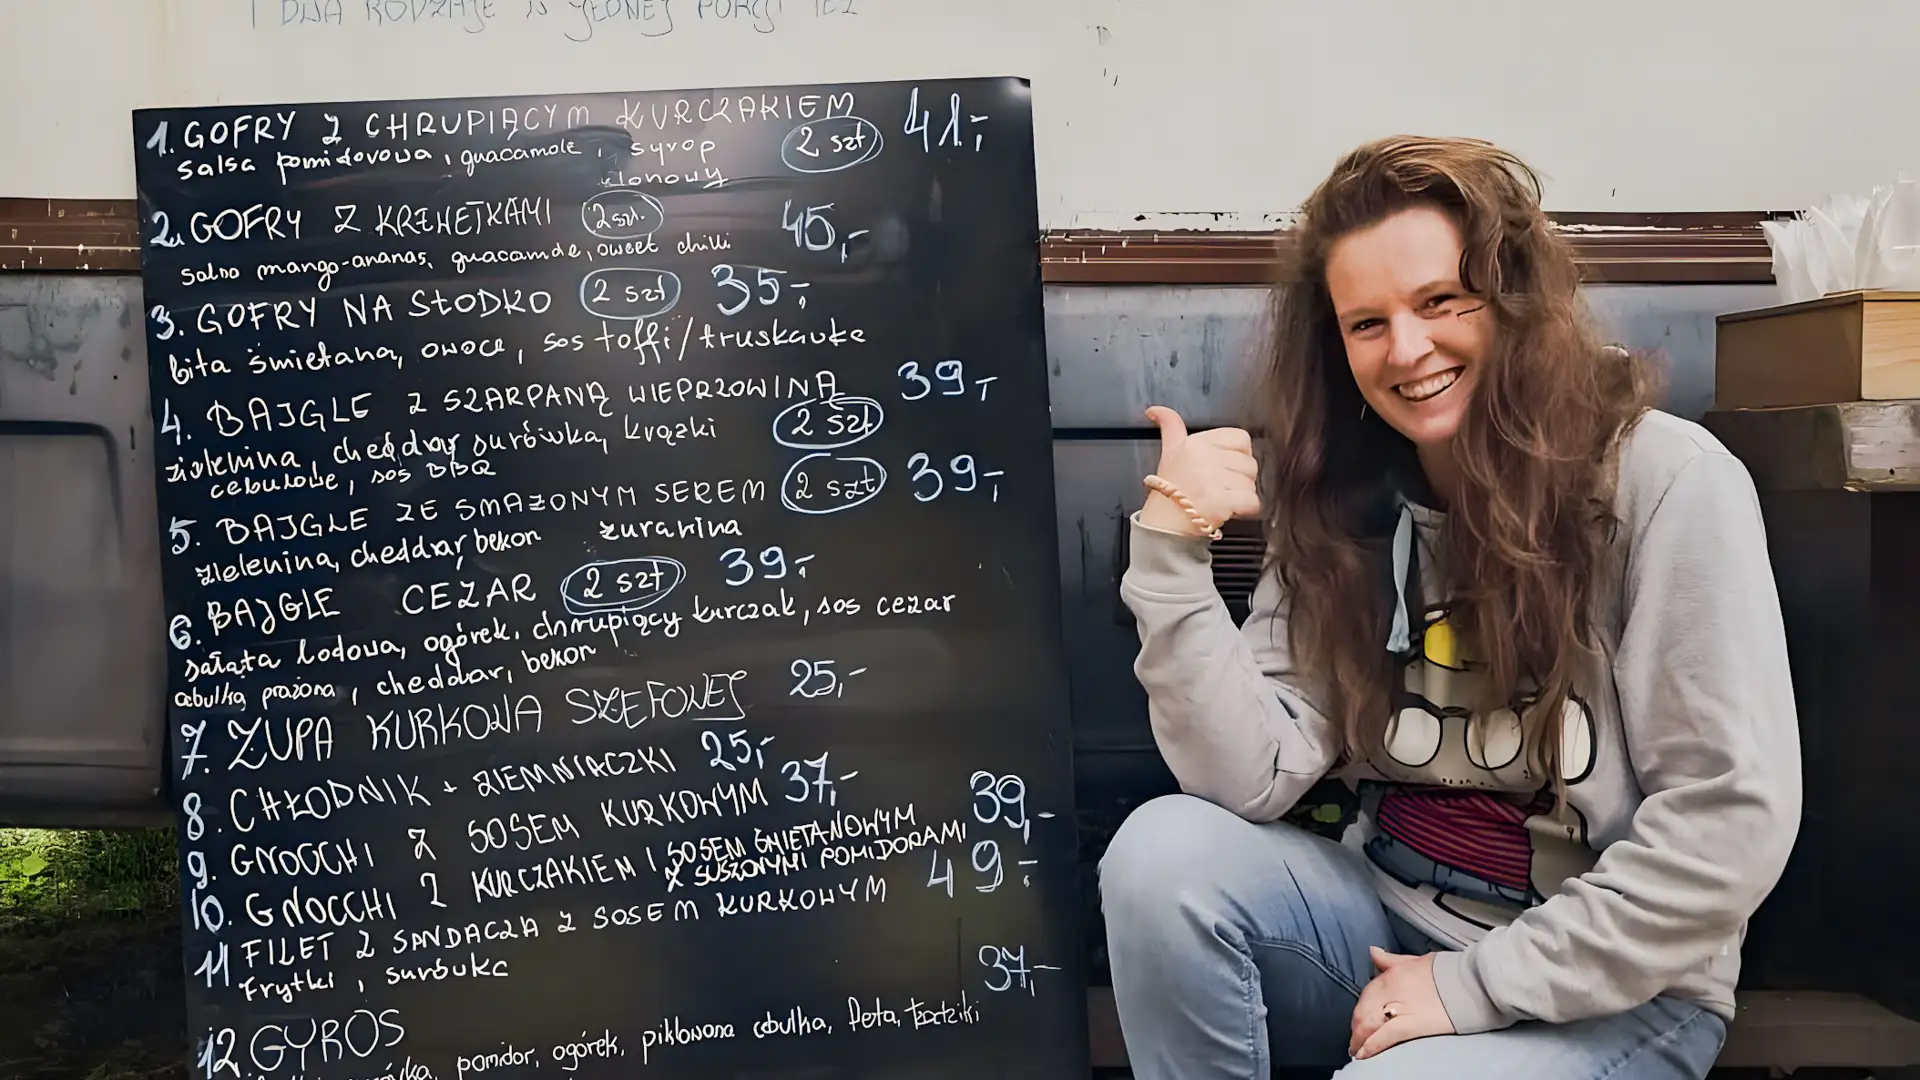 I DWA RODZAJE W JEDNEJ PORCJI TEŻ
1. GOFRY Z CHRUPIĄCYM KURCZAKIEM 41,-
salsa pomidorowa, guacamole, syrop 2 szt
klonowy
2. GOFRY Z KREWETKAMI 2 szt. 45,-
salsa mango-ananas, guacamole, sweet chilli
3. GOFRY NA SŁODKO 2 szt 35,-
bita śmietana, owoce, sos toffi/truskawka
4. BAJGLE Z SZARPANĄ WIEPRZOWINĄ 39,-
zielenina, cheddar, surówka, krążki 2 szt
cebulowe, sos BBQ
5. BAJGLE ZE SMAŻONYM SEREM 2 szt 39,-
zielenina, cheddar, bekon żurawina
6. BAJGLE CEZAR 2 szt 39,-
sałata lodowa, ogórek, chrupiący kurczak, sos cezar
cebulką prażona, cheddar, bekon
7. ZUPA KURKOWA SZEFOWEJ 25,-
8. CHŁODNIK + ZIEMNIACZKI 25,-
9. GNOCCHI Z SOSEM KURKOWYM 37,-
10. GNOCCHI Z KURCZAKIEM I SOSEM ŚMIETANOWYM 39,-
Z SUSZONYMI POMIDORAMI
11 FILET Z SANDACZA Z SOSEM KURKOWYM 49,-
Frytki, surówka
12. GYROS 37,-
pomidor, ogórek, piklowana cebulka, feta, tzatziki